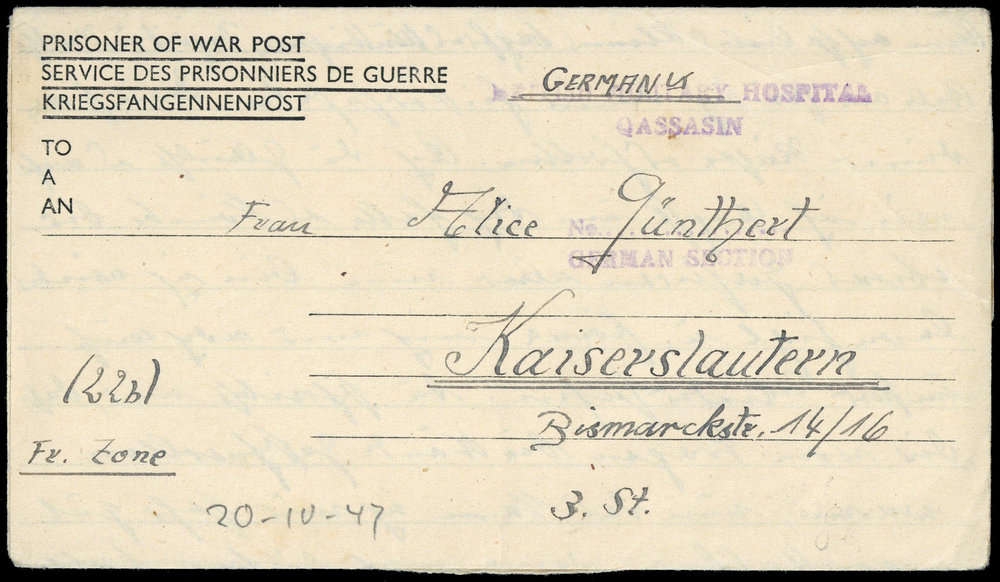 PRISONER OF WAR POST
SERVICE DES PRISONNIERS DE GUERRE
KRIEGSFANGENNENPOST
GERMANY
MILITARY HOSPITAL
QASSASIN
TO
A
AN
Frau Alice Günthert
No.
GERMAN SECTION
Kaiserslautern
(22b)
Bismarckstr. 14/16
Fr. Zone
3. St.
20-IV-47